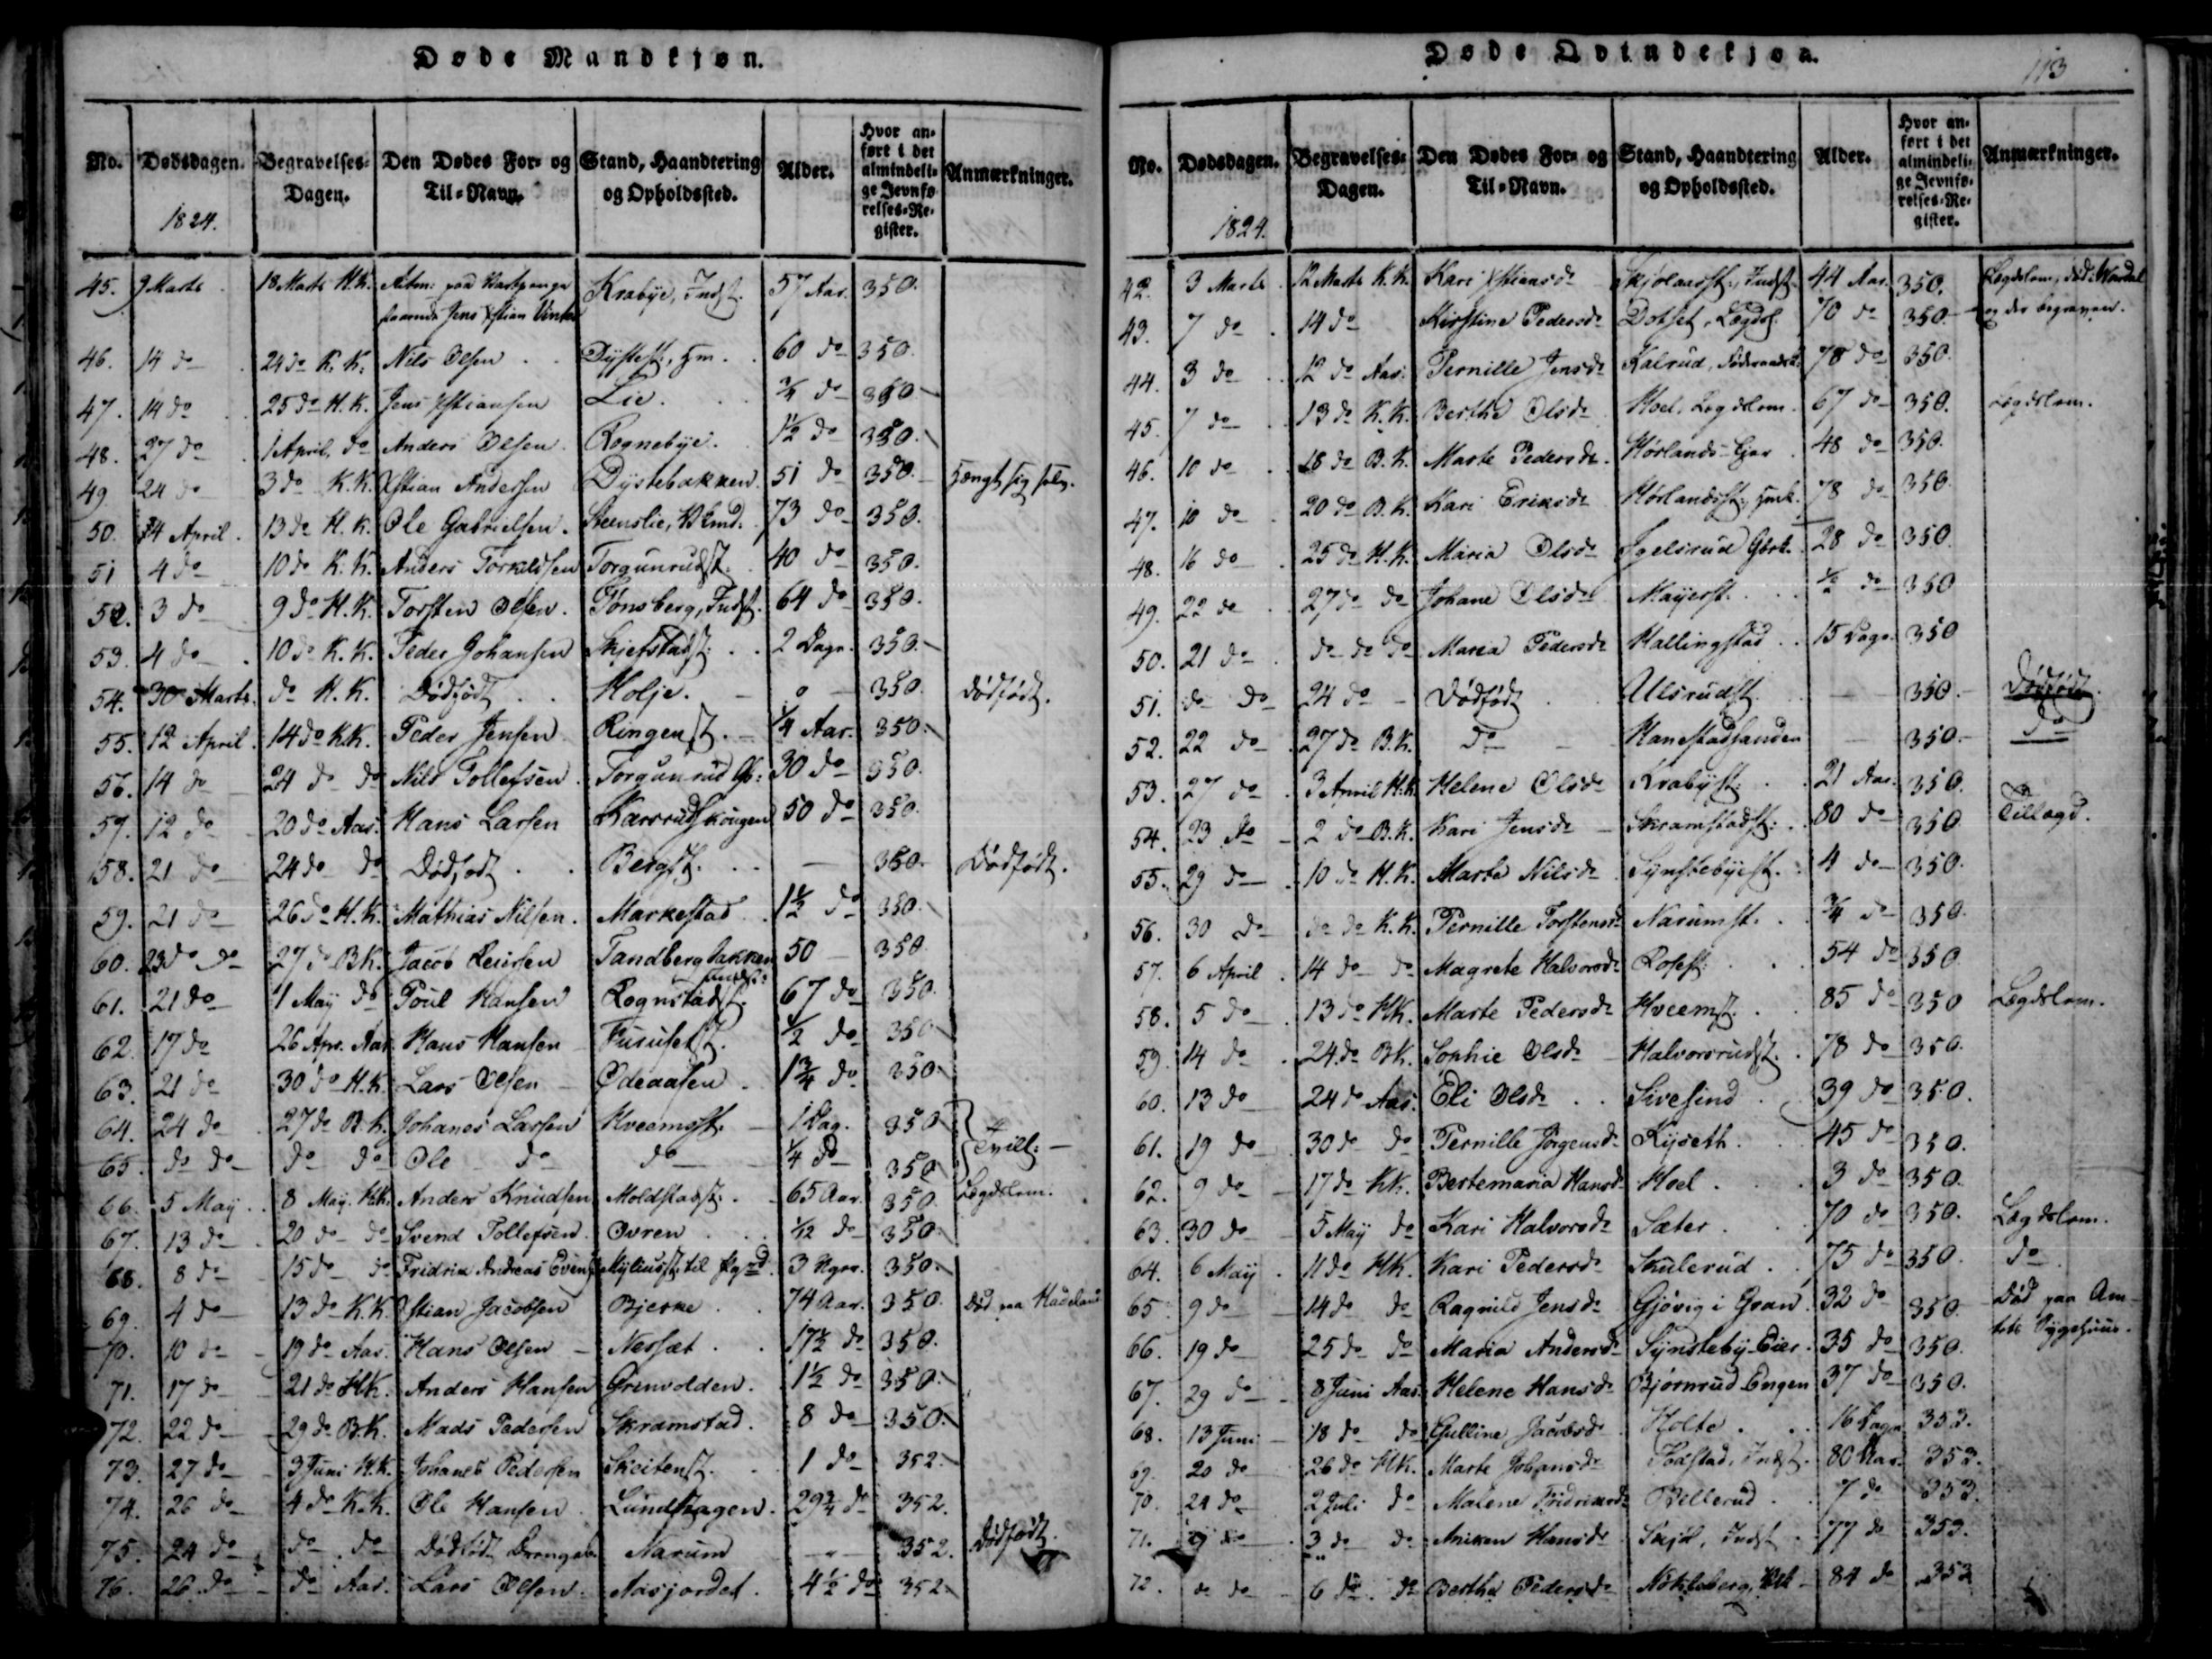 Døde Mandkjøn.
No. Dødsdagen. Begravelses-Dagen. Den Dødes For- og Til-Navn. Stand, Haandtering og Opholdssted. Alder. Hvor anført i det almindelige Jevnførelses-Register. Anmærkninger.
1824.
45. 9 Marts 18 Marts H.K. paa Jens Xstian Krabye, Indst. 57 Aar. 350.
46. 14 do 24 do K.K. Nils Olsen Dystest., 60 do 350.
47. 14 do 25 do H.K. Jens Xstiansen Lie. 3/4 do 350
48. 27 do 1 April, do Anders Olsen Rognebye. 1 1/2 do 350.
49. 24 do 3 do K.K. Xstian Andersen Dystebakken. 51 do 350. hængt sig selv.
50. 4 April. 13 do H.K. Ole Gabrielsen. Steenslie, 73 do 350.
51 4 do 10 do K.K. Anders Torkildsen Torgunrudst. 40 do 350.
52. 3 do 9 do H.K. Torsten Olsen. Tønsberg, Indst. 64 do 350.
53. 4 do 10 do K.K. Peder Johansen Skjefstadst. 2 Dage. 350.
54. 30 Marts. do H.K. Dødfødt Holje. 350. dødfødt.
55. 12 April. 14 do K.K. Peder Jensen Ringenst. 1/4 Aar. 350.
56. 14 do 24 do do Nils Tollefsen. Torgunrud 30 do 350.
57. 12 do 20 do Aas. Hans Larsen Karsrudskougen 50 do 350.
58. 21 do 24 do do Dødfødt Bergst. 350. Dødfødt.
59. 21 do 26 do H.K. Mathias Nilsen. Markestad 1 1/2 do 350.
60. 23 do do 27 do B.K. Jacob Reiersen Tandberg bakken 50 350.
61. 21 do 1 May do Poul Hansen Rognstadst. 67 do 350.
62. 17 do 26 Apr. Aas Hans Hansen Furusetst. 1/2 do 350
63. 21 do 30 do H.K. Lars Olsen Ødeaasen. 1 3/4 do 350.
64. 24 do 27 do B.K. Johanes Larsen Hveemsst. 1 Dag. 350
65. do do do do Ole do do 1/4 do 350 Tvill:
66. 5 May. 8 May. H.K. Anders Knudsen Moldstadst. 65 Aar. 350. Lægdslem.
67. 13 do 20 do do Svend Tollefsen. Øvren 1/12 do 350.
68. 8 do 15 do do Fridrik Andreas Myliusst. til 3 350.
69. 4 do 13 do K.K Xstian Jacobsen Bjerke. 74 Aar. 350. død paa Hadeland
70. 10 do 19 do Aas. Hans Olsen Nessæt. 17 1/2 do 350.
71. 17 do 21 do H.K. Anders Hansen Grinvolden. 1 1/2 do 350.
72. 22 do 29 do B.K. Mads Pedersen Skramstad. 8 do 350.
73. 27 do 3 Juni H.K. Johanes Pedersen Skeitenst. 1 do 352.
74. 26 do 4 do K.K. Ole Hansen Lundshagen. 29 3/4 do 352.
75. 24 do do do Dødfødt Narum 352. Dødfødt.
76. 26 do do Aas. Lars Olsen Aasjordet. 4 1/2 do 352.
Døde Qvindekjøn.
113
No. Dødsdagen. Begravelses-Dagen. Den Dødes For- og Til-Navn. Stand, Haandtering og Opholdssted. Alder. Hvor anført i det almindelige Jevnførelses-Register. Anmærkninger.
1824.
42. 3 Marts 12 Marts K.K. Kari Xstiansd. Indst. 44 Aar. 350. Lægdslem, død i Wardal
43. 7 do 14 do Kirstine Pedersd. Dotset, Lægdsl. 70 do 350 og der begraven.
44. 3 do 12 do Aas. Pernille Jensd. Kalrud, 78 do 350.
45. 7 do 13 do K.K. Berthe Olsd. Hoel, Lægdslem. 67 do 350. Lægdslem.
46. 10 do 18 do B.K. Marte Pedersd. Hørlands 48 do 350.
47. 10 do 20 do B.K. Kari Eriksd. Hørlandsst. 78 do 350.
48. 16 do 25 do H.K. Maria Olsd. Igelsrud 28 do 350.
49. 22 do 27 do do Johane Olsd. Mayerst. 1/2 do 350
50. 21 do do do do Maria Pedersd. Hallingstad 15 Dage. 350
51. do do 24 do Dødfødt Ulsrudst. 350. Dødfødt.
52. 22 do 27 do B.K. do Hanestadsanden 350. do
53. 27 do 3 April H.K. Helene Olsd. Krabyst. 21 Aar. 350.
54. 23 do 2 do B.K. Kari Jensd. Skramstadst. 80 do 350 Tillagd.
55. 29 do 10 do H.K. Marte Nilsd. Synstebyest. 4 do 350.
56. 30 do do do K.K. Pernille Torstensd. Narumst. 3/4 do 350.
57. 6 April 14 do do Magrete Halvorsd. Rosest. 54 do 350
58. 5 do 13 do H.K. Marte Pedersd. Hveemst. 85 do 350 Lægdslem.
59. 14 do 24 do B.K. Sophie Olsd. Halvorsrudst. 78 do 350.
60. 13 do 24 do Aas. Eli Olsd. Sivesind 39 do 350.
61. 19 do 30 do do Pernille Jørgensd. Ryseth 45 do 350.
62. 9 do 17 do K.K. Bertemaria Hansd. Hoel. 3 do 350.
63. 30 do 5 May do Kari Halvorsd. Sæter. 70 do 350. Lægdslem.
64. 6 May. 11 do H.K. Kari Pedersd. Skulerud. 75 do 350. do
65. 9 do 14 do do Ragnild Jensd. Gjøvig i Gran. 32 do 350. Død paa Am-
66. 19 do 25 do do Maria Andersd. Synsteby-Eier. 35 do 350. tets Sygehuus.
67. 29 do 8 Juni Aas. Helene Hansd. Bjørnrud Engen 37 do 350.
68. 13 Juni 18 do do Gulline Jacobsd. Holte. 16 Dage 353.
69. 20 do 26 do H.K. Marte Johansd. Indst. 80 Aar. 353.
70. 24 do 2 Juli do Malene Fridriksd. Billerud 7 do 353.
71. 3 do do Aniken Hansd. Indst. 77 do 353.
72. do do 6 do do Berthe Pedersd. Nøkleberg, 84 do 352